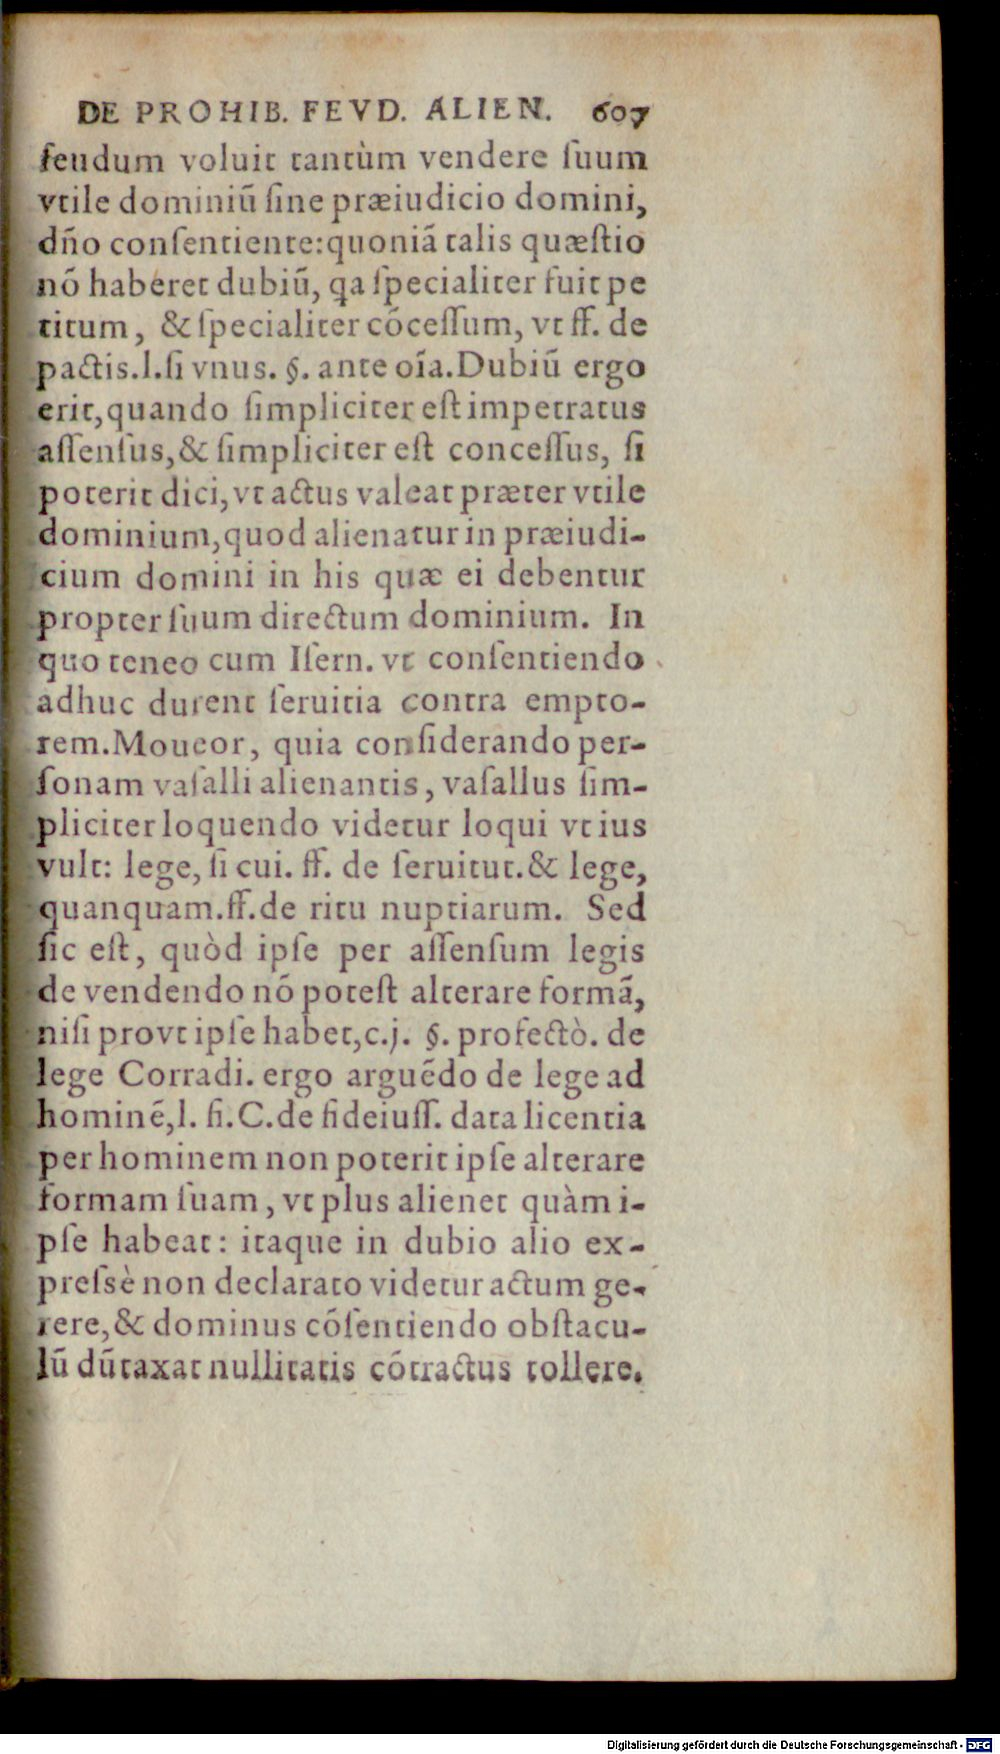 DE PROHIB. FEVD. ALIEN. 607
feudum voluit tantùm vendere ſuum
vtile dominiũ ſine præiudicio domini,
dño conſentiente:quoniã talis quæſtio
nõ haberet dubiũ, qa ſpecialiter fuit pe
titum, & ſpecialiter cõceſſum, vt ff. de
pactis.l.ſi vnus. §. ante oĩa.Dubiũ ergo
erit,quando ſimpliciter eſt impetratus
aſſenſus,& ſimpliciter eſt conceſſus, ſi
poterit dici, vt actus valeat præter vtile
dominium,quod alienatur in præiudi-
cium domini in his quæ ei debentur
propter ſuum directum dominium. In
quo teneo cum Iſern. vt conſentiendo
adhuc durent ſeruitia contra empto-
rem.Moueor, quia conſiderando per-
ſonam vaſalli alienantis, vaſallus ſim-
pliciter loquendo videtur loqui vt ius
vult: lege, ſi cui. ff. de ſeruitut.& lege,
quanquam.ff.de ritu nuptiarum. Sed
ſic eſt, quòd ipſe per aſſenſum legis
de vendendo nõ poteſt alterare formã,
niſi provt ipſe habet,c.j. §. profectò. de
lege Corradi. ergo arguẽdo de lege ad
hominẽ,l. fi.C.de fideiuſſ. data licentia
per hominem non poterit ipſe alterare
formam ſuam, vt plus alienet quàm i-
pſe habeat: itaque in dubio alio ex-
preſsè non declarato videtur actum ge-
rere,& dominus cõſentiendo obſtacu-
lũ dũtaxat nullitatis cõtractus tollere.
Digitalisierung gefördert durch die Deutsche Forschungsgemeinschaft - DFG